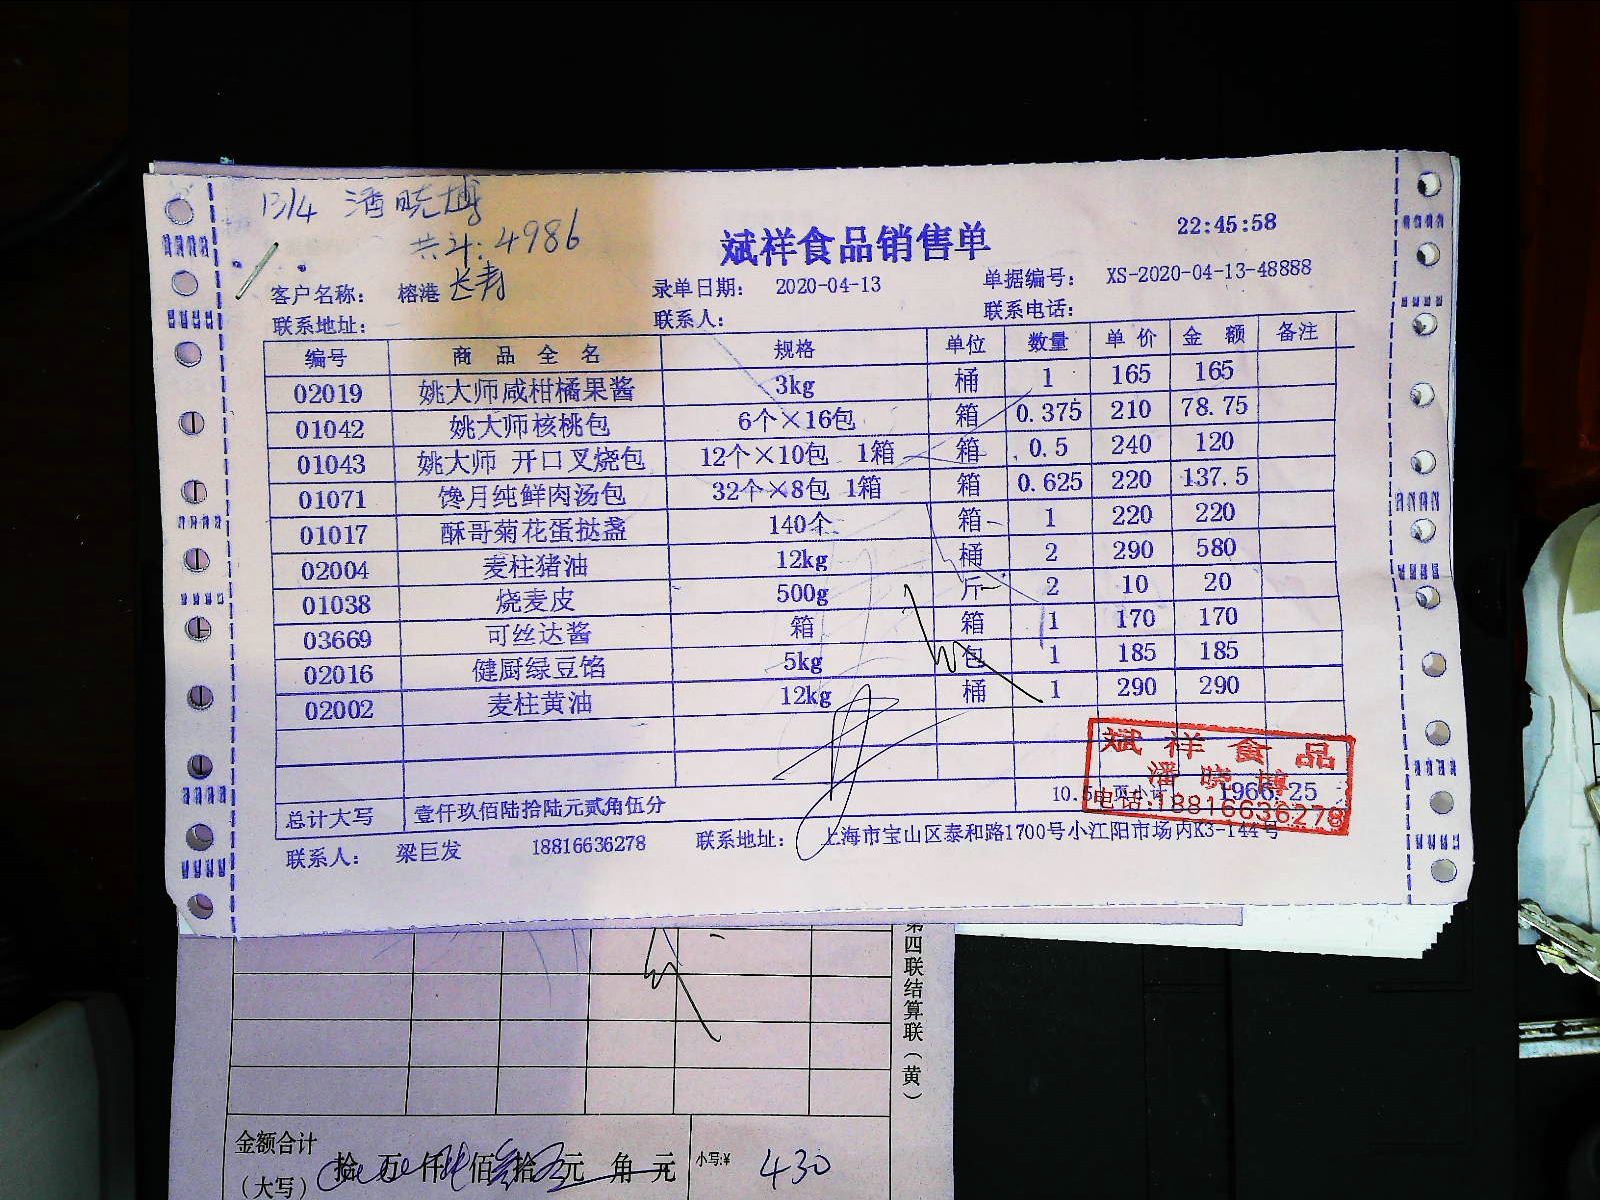 13/4 潘晓博
共计:4986
斌祥食品销售单
22:45:58
客户名称： 榕港 长寿 录单日期： 2020-04-13 单据编号： XS-2020-04-13-48888
联系地址： 联系人： 联系电话：
编号 商 品 全 名 规格 单位 数量 单 价 金 额 备注
02019 姚大师咸柑橘果酱 3kg 桶 1 165 165
01042 姚大师核桃包 6个×16包 箱 0.375 210 78.75
01043 姚大师 开口叉烧包 12个×10包 1箱 箱 0.5 240 120
01071 馋月纯鲜肉汤包 32个×8包 1箱 箱 0.625 220 137.5
01017 酥哥菊花蛋挞盏 140个 箱 1 220 220
02004 麦柱猪油 12kg 桶 2 290 580
01038 烧麦皮 500g 斤 2 10 20
03669 可丝达酱 箱 箱 1 170 170
02016 健厨绿豆馅 5kg 包 1 185 185
02002 麦柱黄油 12kg 桶 1 290 290
斌祥食品
潘晓博
电话:18816636278
总计大写 壹仟玖佰陆拾陆元贰角伍分 10.5 页小计 1966.25
联系人： 梁巨发 18816636278 联系地址： 上海市宝山区泰和路1700号小江阳市场内K3-144号
第四联结算联（黄）
金额合计
（大写） 拾 万 仟 佰 拾 元 角 元 小写:¥ 430